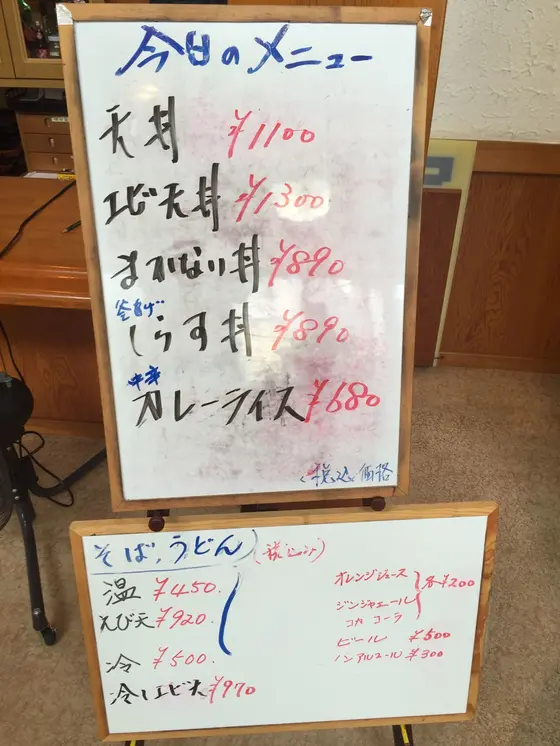 今日のメニュー
天丼 ¥1100
エビ天丼 ¥1300
まかない丼 ¥890
釜あげ
しらす丼 ¥890
中辛
カレーライス ¥680
税込価格
そば、うどん (税込)
温 ¥450
えび天 ¥920
冷 ¥500
冷しエビ天 ¥970
オレンジジュース
各¥200
ジンジャエール
コカ コーラ
ビール ¥500
ノンアルコール ¥300